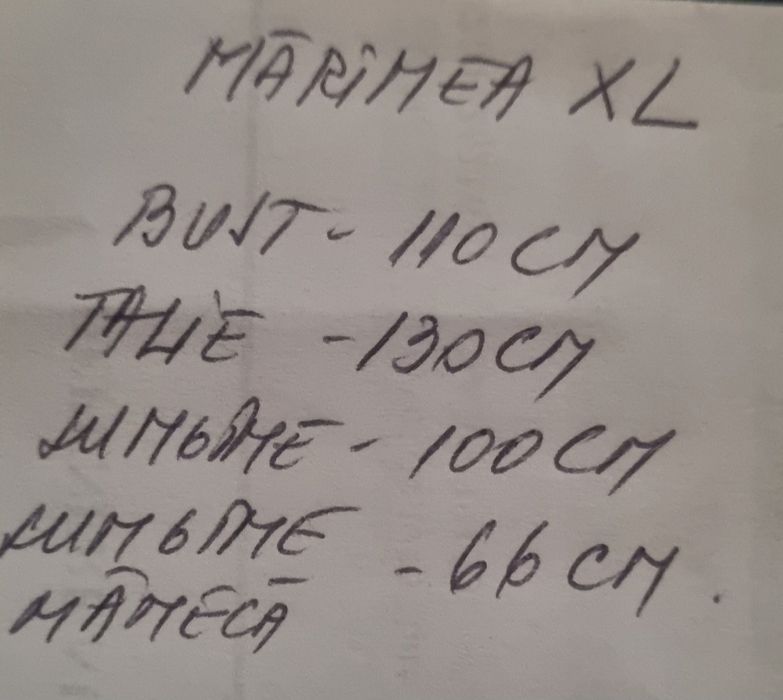 MĂRIMEA XL
BUST - 110 CM
TALIE - 130 CM
LUNGIME - 100 CM
LUNGIME - 66 CM.
MÂNECĂ